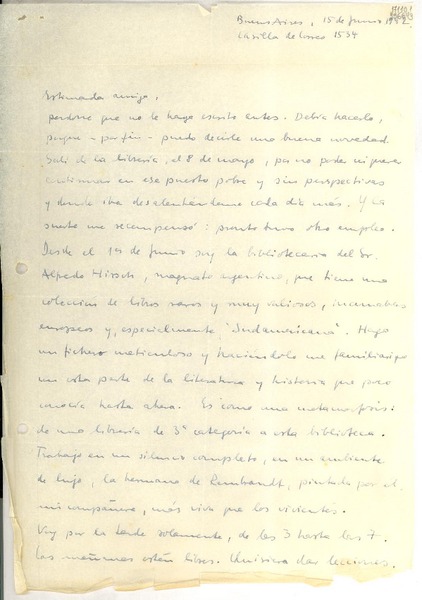 Buenos Aires, 15 de Junio 1952
Casilla de Correo 1534
Estimada amiga,
perdone que no le haya escrito antes. Debía hacerlo,
porque - por fin - puedo decirle una buena novedad.
Salí de la librería, el 8 de mayo, por no poder ni querer
continuar en ese puesto pobre y sin perspectivas
y donde iba desalentándome cada día más. Y la
suerte me recompensó: pronto tuve otro empleo.
Desde el 1º de Junio soy la bibliotecaria del Sr.
Alfredo Hirsch, magnate argentino, que tiene una
colección de libros raros y muy valiosos, incunables
europeos y, especialmente "Sudamericana". Hago
un fichero meticuloso y haciéndolo me familiarizo
con esta parte de la literatura y historia que poco
conocía hasta ahora. Es como una metamorfosis:
de una librería de 3ª categoría a esta biblioteca.
Trabajo en un silencio completo, en un ambiente
de lujo, la hermana de Rembrandt, pintada por él,
mi compañera, más viva que los vivientes.
Voy por la tarde solamente, de las 3 hasta las 7.
Las mañanas están libres. Quisiera dar lecciones.